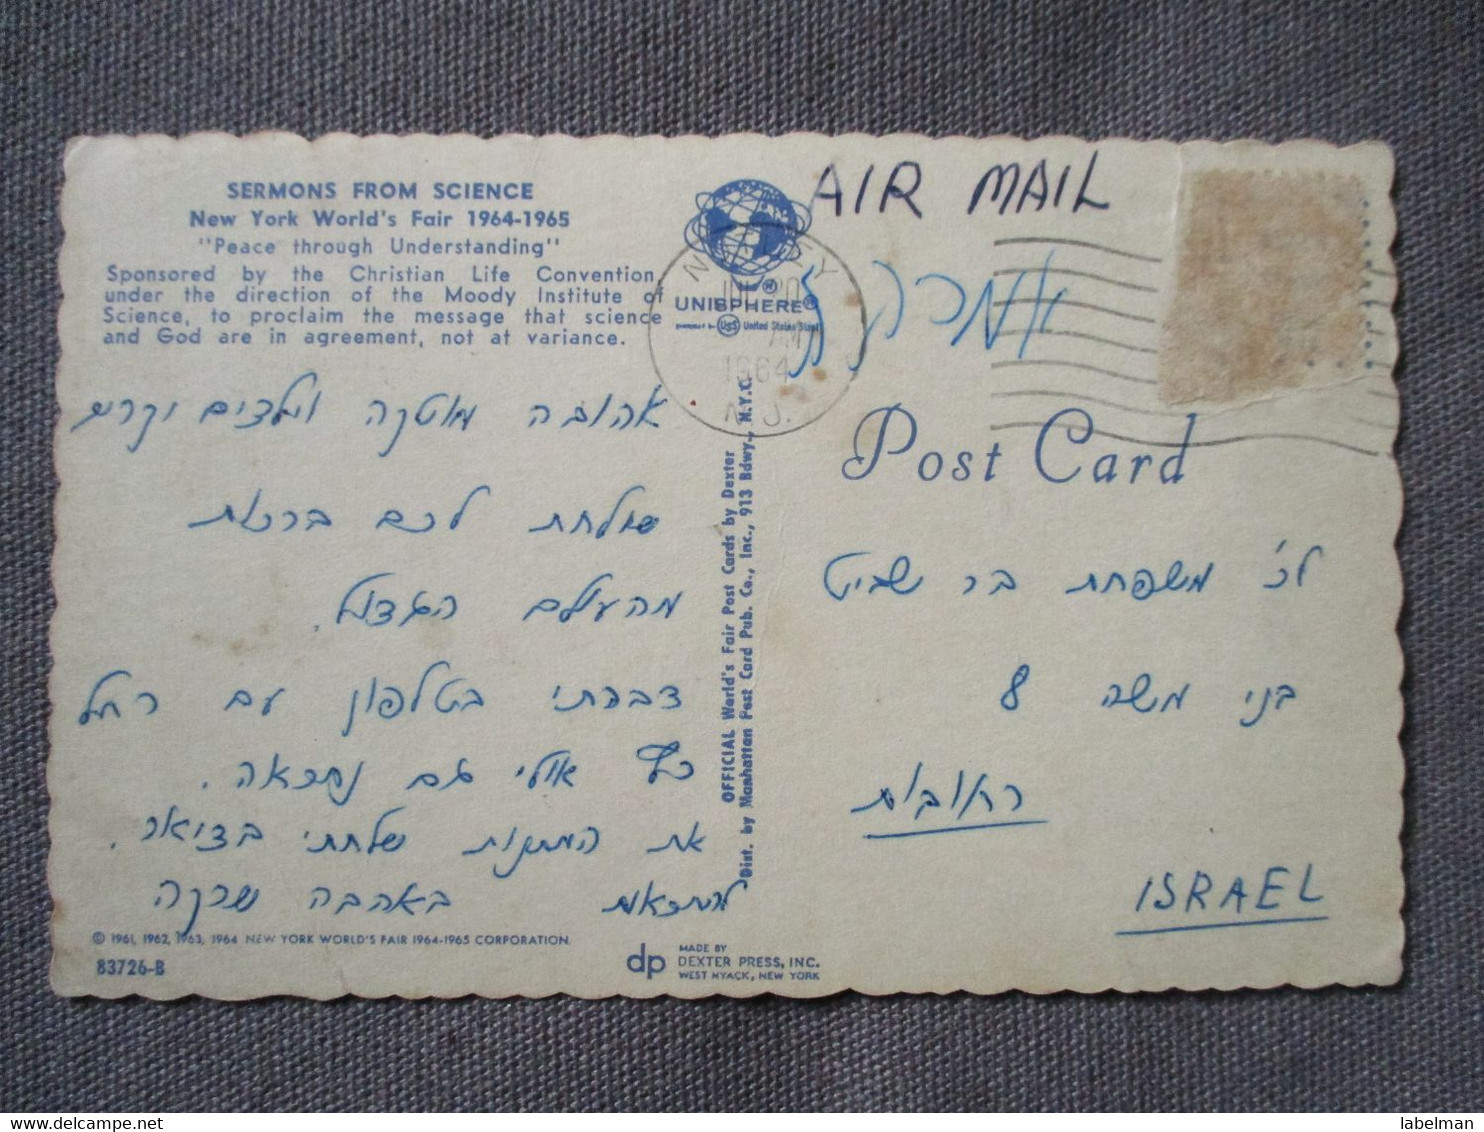 SERMONS FROM SCIENCE
New York World's Fair 1964-1965
"Peace through Understanding"
Sponsored by the Christian Life Convention,
under the direction of the Moody Institute of
Science, to proclaim the message that science
and God are in agreement, not at variance.
אהובה מוטקה וילדים יקרים
שולחת לכם ברכות
מהעולם הגדול.
דברתי בטלפון עם רחל
כץ אולי גם נתראה.
את המתנות שלחתי בדואר.
להתראות באהבה שרקה
© 1961, 1962, 1963, 1964 NEW YORK WORLD'S FAIR 1964-1965 CORPORATION
83726-B
dp MADE BY
DEXTER PRESS, INC.
WEST NYACK, NEW YORK
OFFICIAL World's Fair Post Cards by Dexter
Dist. by Manhattan Post Card Pub. Co., Inc., 913 Bdwy., N.Y.C.
UNISPHERE®
USS United States Steel
AM
1964
N.J.
AIR MAIL
Post Card
לכ' משפחת בר שביט
בני משה 8
רחובות
ISRAEL
labelman